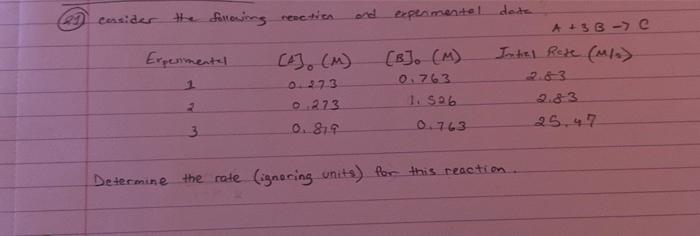 21) consider the following reaction and experimental data
A + 3 B -> C
Experimental [A]o (M) [B]o (M) Initial Rate (M/s)
1 0.273 0.763 2.83
2 0.273 1.526 2.83
3 0.819 0.763 25.47
Determine the rate (ignoring units) for this reaction.